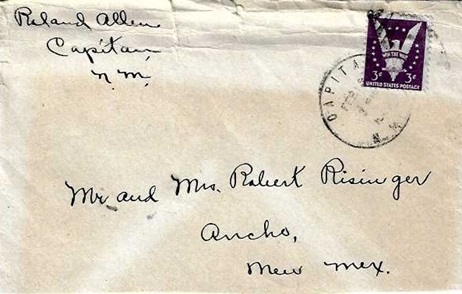 Roland Allen
Capitan
N.M.
WIN THE WAR
3¢ 3¢
UNITED STATES POSTAGE
CAPITA
FEB
N. M.
Mr and Mrs. Robert Risinger
Ancho,
New Mex.